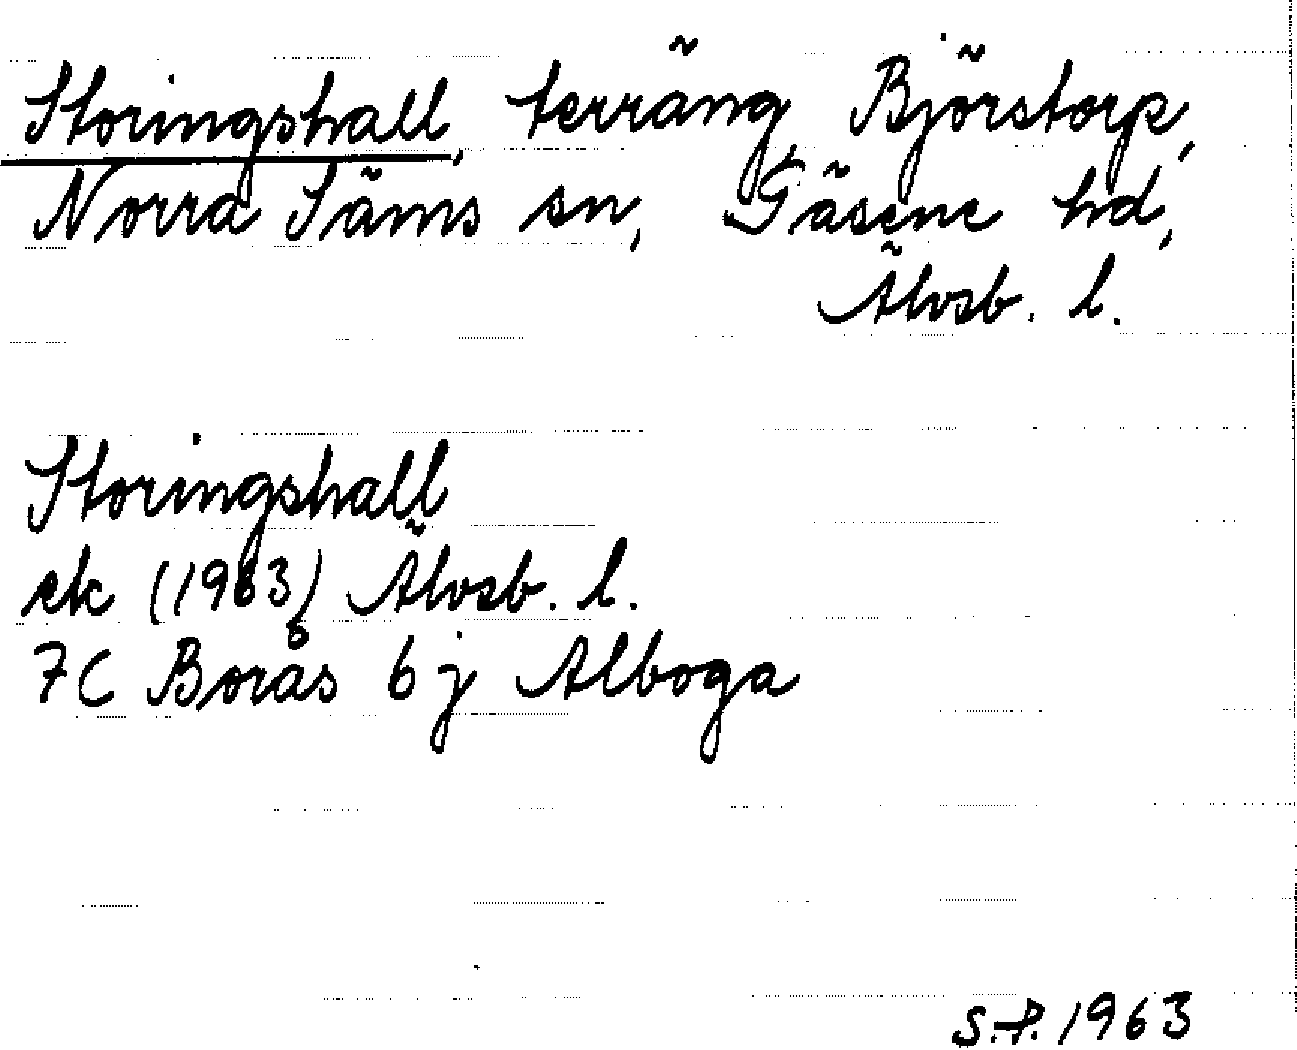 Storingshall, terräng, Björstorp,
Norra Säms sn, Gäsene hd,
Älvsb. l.
Storingshall
ek (1963) Älvsb. l.
7C Borås 6j Alboga
S.P. 1963